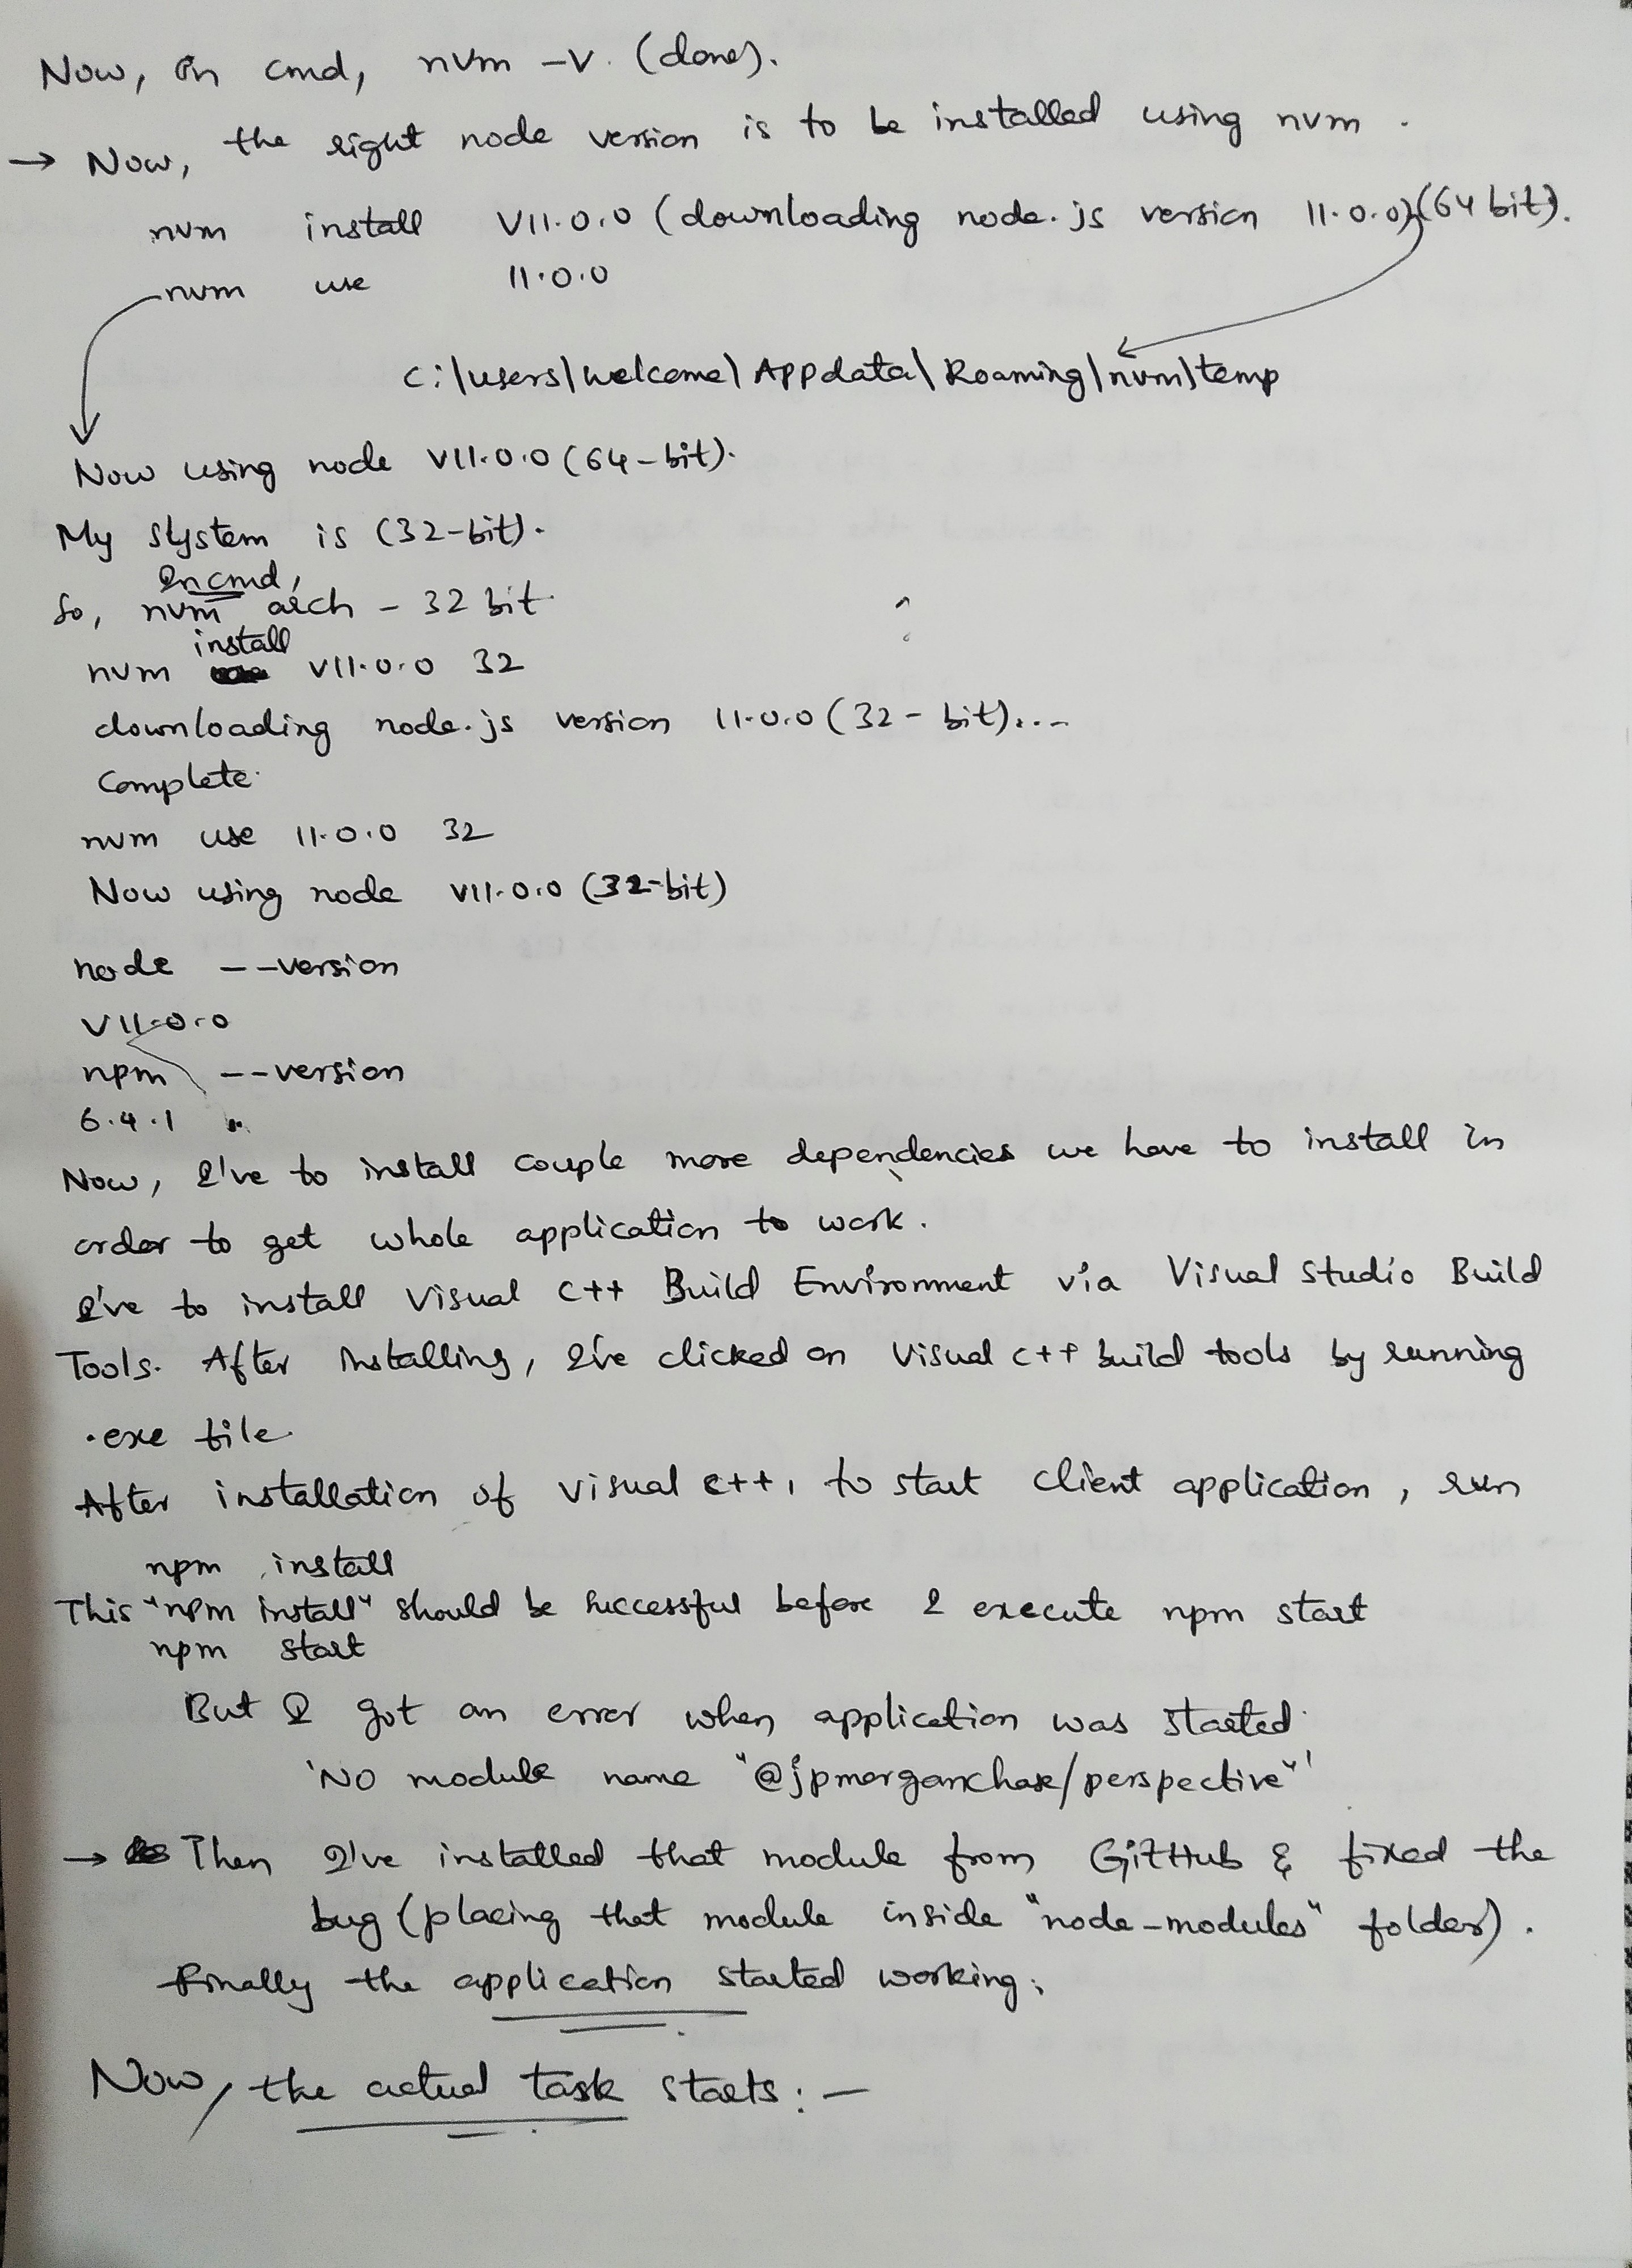 Now, On cmd, nvm -v. (done).
→ Now, the right node version is to be installed using nvm.
nvm install v11.0.0 (downloading node.js version 11.0.0)(64 bit).
nvm use 11.0.0
C:\users\welcome\Appdata\Roaming\nvm\temp
Now using node v11.0.0 (64-bit).
My system is (32-bit).
In cmd,
So, nvm arch - 32 bit
install
nvm v11.0.0 32
downloading node.js version 11.0.0 (32-bit)...
Complete.
nvm use 11.0.0 32
Now using node v11.0.0 (32-bit)
node --version
v11.0.0
npm --version
6.4.1
Now, I've to install couple more dependencies we have to install in
order to get whole application to work.
I've to install Visual C++ Build Environment via Visual Studio Build
Tools. After Installing, I've clicked on Visual C++ build tools by running
.exe file.
After installation of Visual C++, to start client application, run
npm install
This "npm install" should be successful before I execute npm start
npm start
But I got an error when application was started.
'No module name "@jpmorganchase/perspective"'
→ Then I've installed that module from GitHub & fixed the
bug (placing that module inside "node-modules" folder).
Finally the application started working.
Now, the actual task starts:-